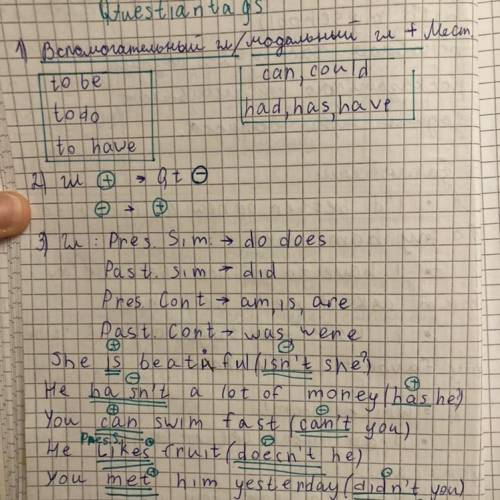 Questiantags
1) Вспомогательный гл/модальный гл + Мест.
to be
to do
to have
can, could
had, has, have
2) гл ⊕ → Qt ⊖
⊖ → ⊕
3) гл: Pres. Sim. → do does
Past. sim → did
Pres. Cont → am, is, are
Past. Cont → was, were
⊕ ⊖
She is beatiful (isn't she?)
⊖ ⊕
He hasn't a lot of money (has he)
⊕ ⊖
You can swim fast (can't you)
Pres S. ⊕ ⊖
He Likes fruit (doecn't he)
⊕ ⊖
You met him yesterday (didn't you)